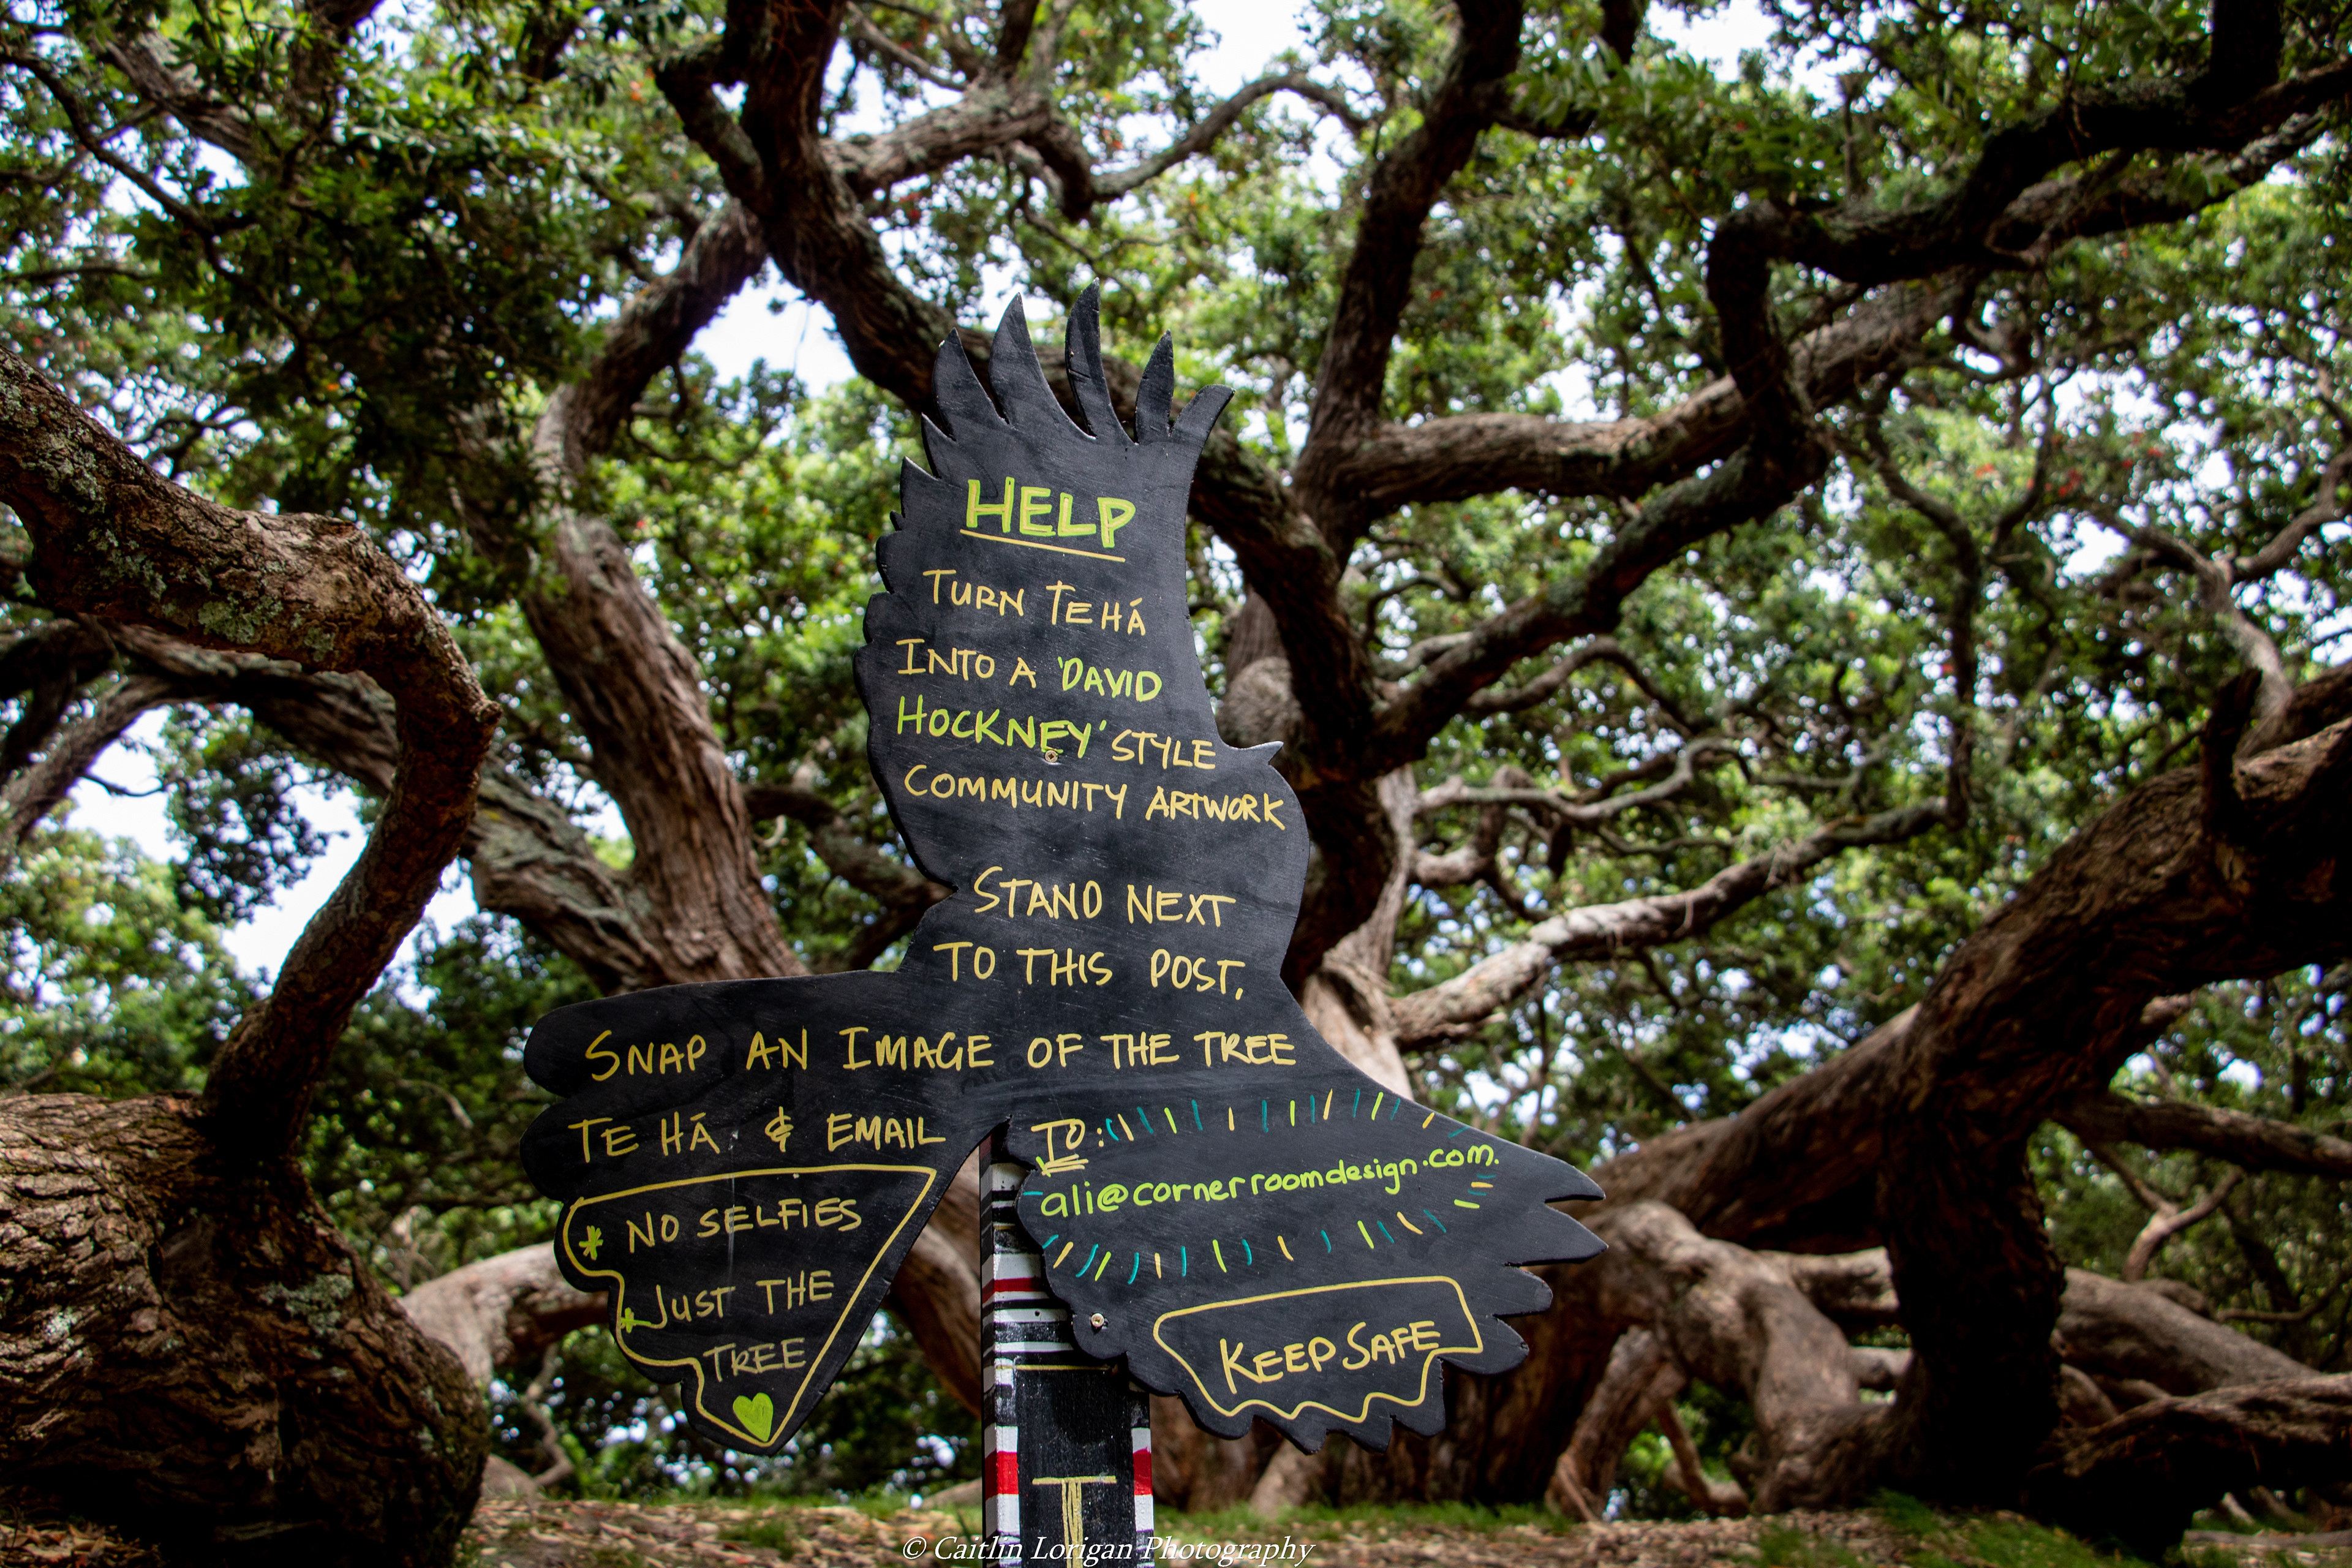 HELP
TURN TE HÁ
INTO A 'DAVID
HOCKNEY' STYLE
COMMUNITY ARTWORK
STAND NEXT
TO THIS POST,
SNAP AN IMAGE OF THE TREE
TE HĀ & EMAIL
TO:
ali@cornerroomdesign.com.
* NO SELFIES
* JUST THE
TREE
KEEP SAFE
T
© Caitlin Lorigan Photography